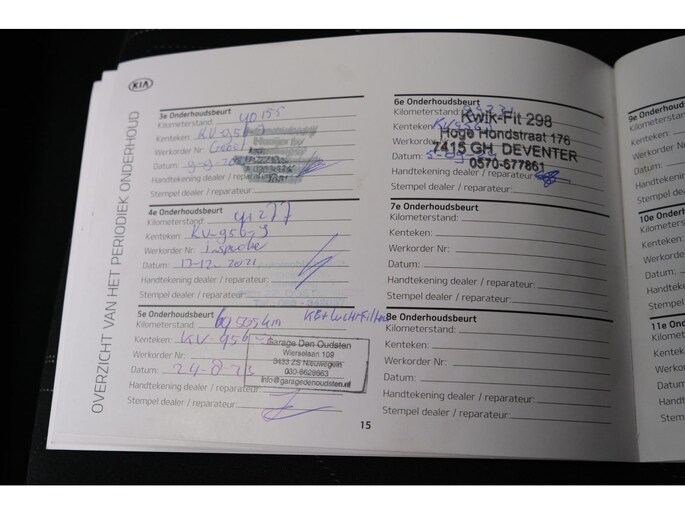 KIA
OVERZICHT VAN HET PERIODIEK ONDERHOUD
3e Onderhoudsbeurt
Kilometerstand: 40155
Kenteken:
Werkorder Nr:
Datum:
Handtekening dealer / reparateur:
Stempel dealer / reparateur:
4e Onderhoudsbeurt
Kilometerstand: 41277
Kenteken: KV-956-J
Werkorder Nr:
Datum: 17-12-2021
Handtekening dealer / reparateur:
Stempel dealer / reparateur:
5e Onderhoudsbeurt
Kilometerstand: 69505km KB+Luchtfilter
Kenteken:
Werkorder Nr:
Datum: 24-8-23
Handtekening dealer / reparateur:
Stempel dealer / reparateur:
Garage Den Oudsten
Wierselaan 109
3433 ZS Nieuwegein
030-6628663
info@garagedenoudsten.nl
6e Onderhoudsbeurt
Kilometerstand:
Kenteken:
Werkorder
Datum:
Handtekening dealer / reparateur:
Stempel dealer / reparateur:
Kwik-Fit 298
Hoge Hondstraat 176
7415 GH, DEVENTER
0570-677861
7e Onderhoudsbeurt
Kilometerstand:
Kenteken:
Werkorder Nr:
Datum:
Handtekening dealer / reparateur:
Stempel dealer / reparateur:
8e Onderhoudsbeurt
Kilometerstand:
Kenteken:
Werkorder Nr:
Datum:
Handtekening dealer / reparateur:
Stempel dealer / reparateur:
15
9e Onderh
Kilometers
Kenteken:
Werkorder
Datum:
Handteke
Stempel
10e Onde
Kilomete
Kenteke
Werkor
Datum:
Handte
Stempe
11e On
Kilom
Kente
Werk
Datu
Hand
Stem